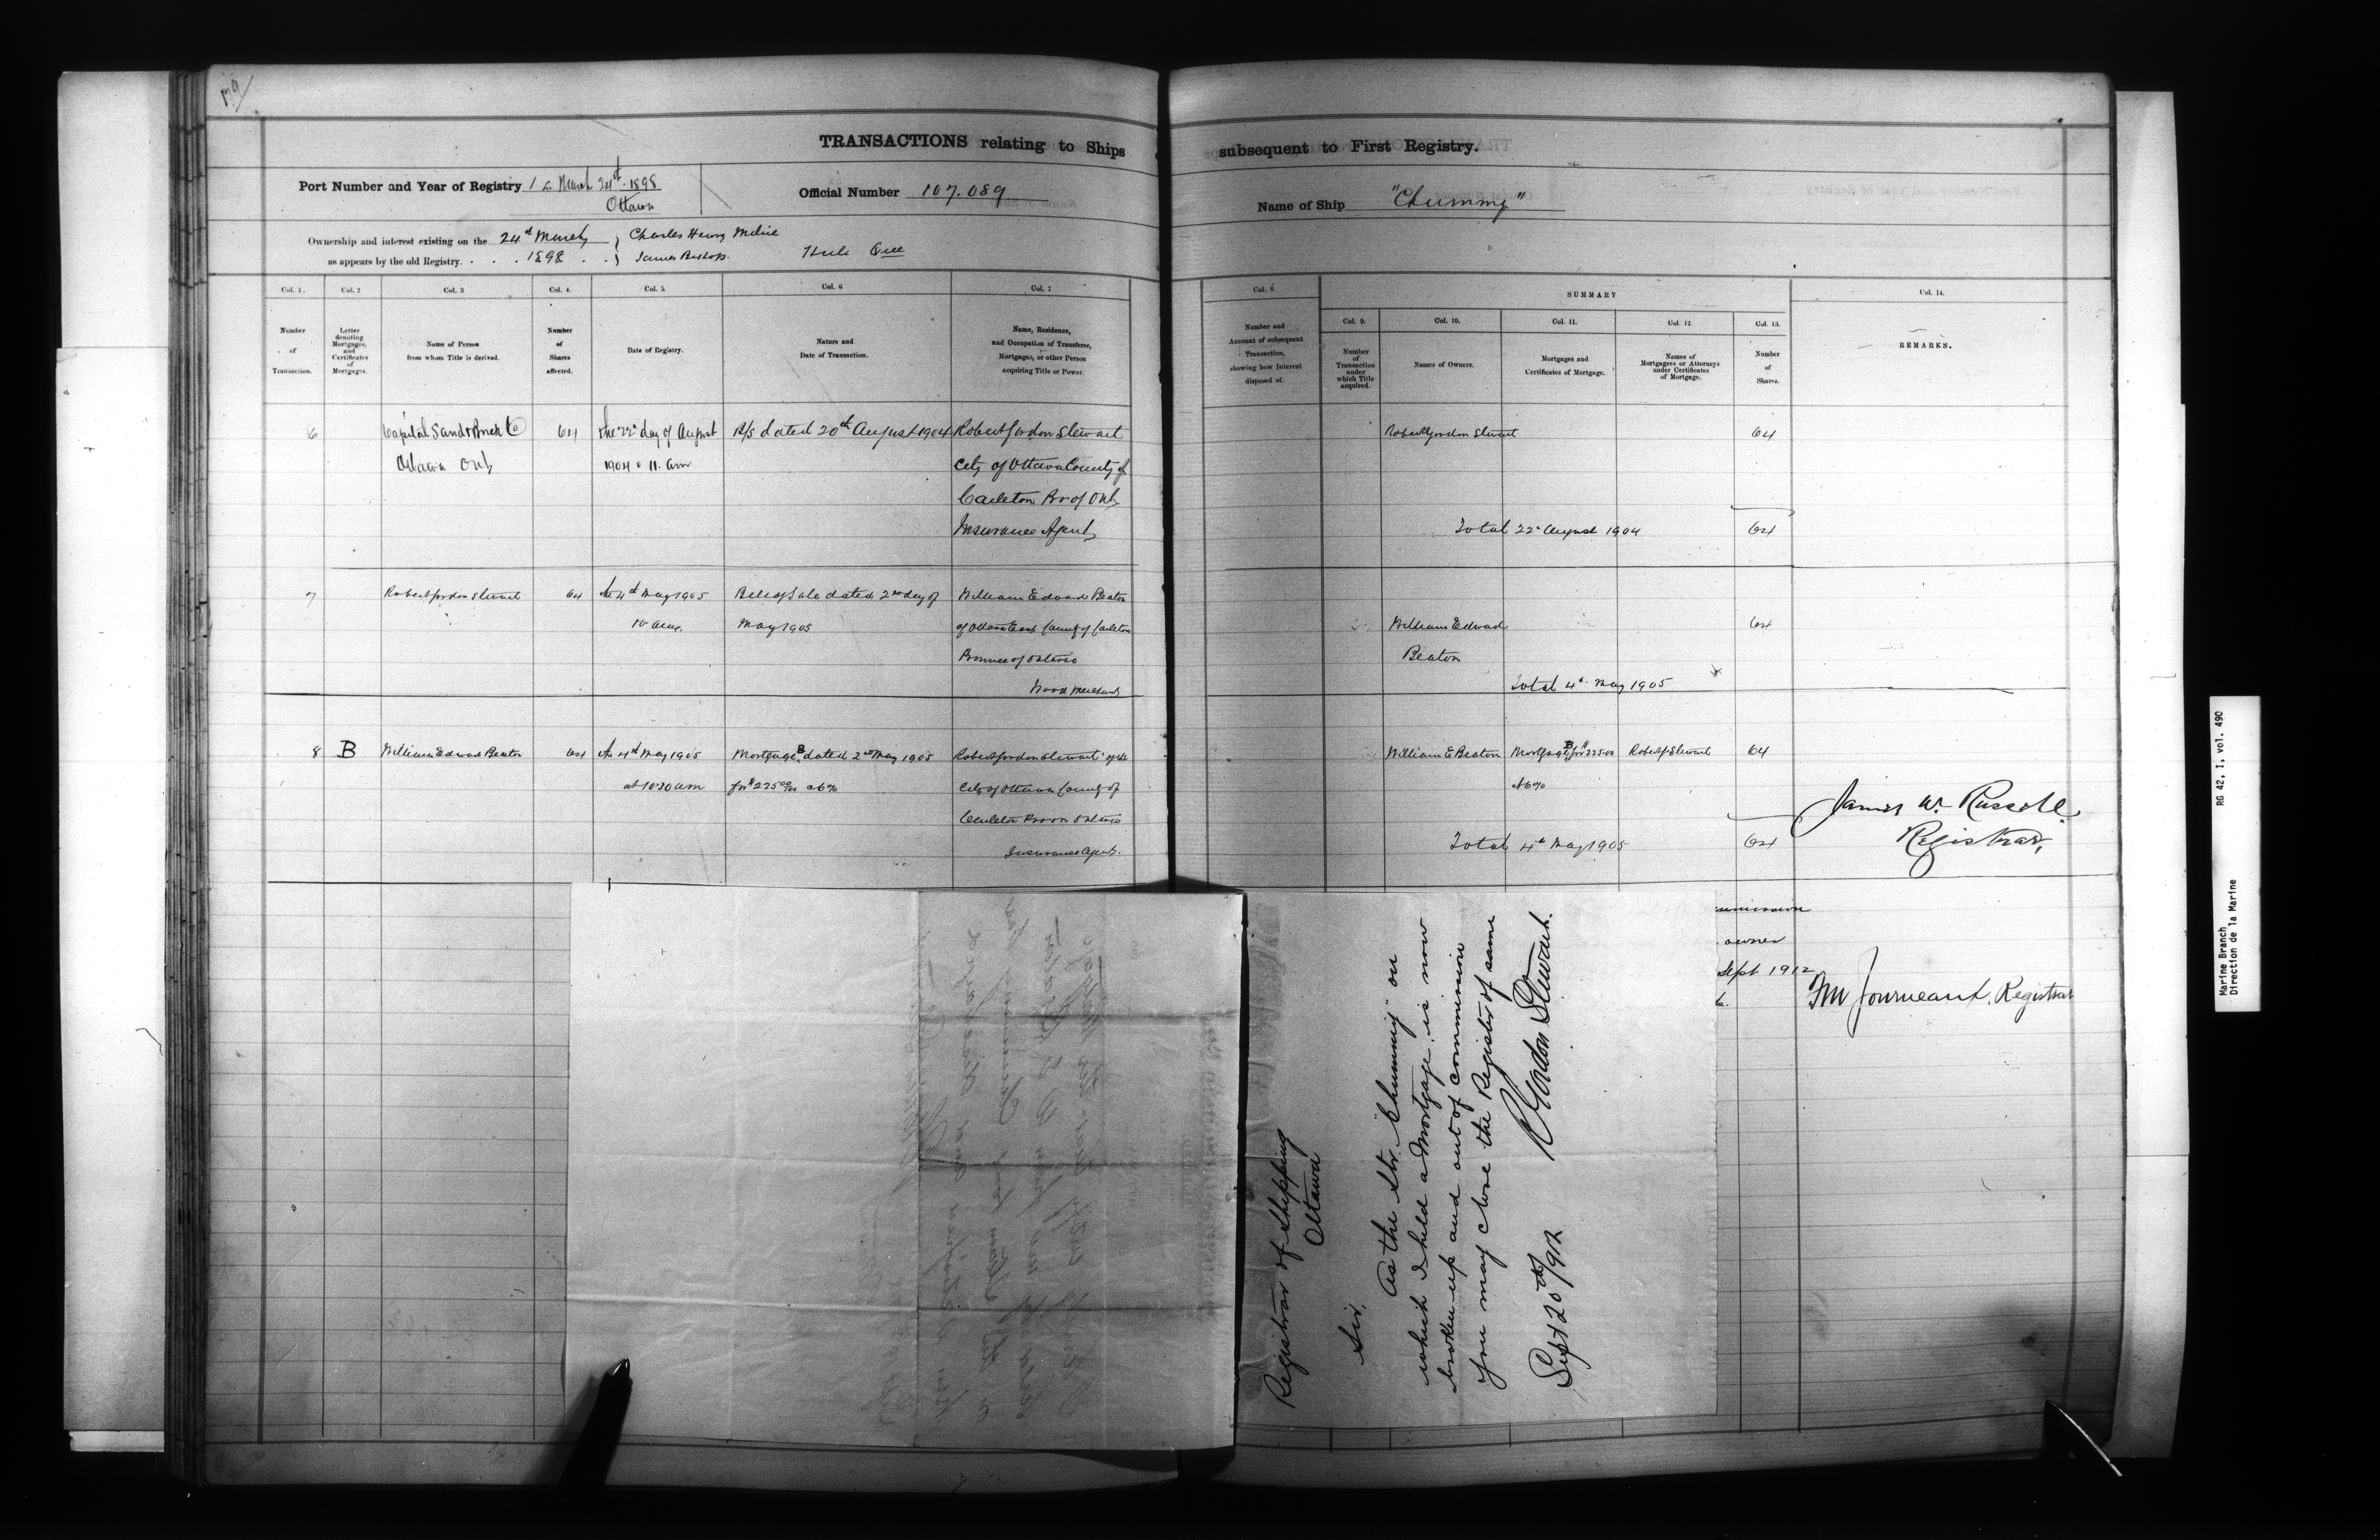 179
TRANSACTIONS relating to Ships subsequent to First Registry.
Port Number and Year of Registry 1 March 24th 1898
Ottawa
Official Number 107.089
Name of Ship "Chummy"
Ownership and interest existing on the 24th March
as appears by the old Registry. . . . 1898 . .
Charles Henry Milne
James Bishop.
Hull Que
Col. 1.
Number
of
Transaction.
Col. 2
Letter
denoting
Mortgages,
and
Certificates
of
Mortgages.
Col. 3
Name of Person
from whom Title is derived.
Col. 4.
Number
of
Shares
affected.
Col. 5.
Date of Registry.
Col. 6
Nature and
Date of Transaction.
Col. 7
Name, Residence,
and Occupation of Transferee,
Mortgagee, or other Person
acquiring Title or Power.
Col. 8.
Number and
Account of subsequent
Transaction,
showing how Interest
disposed of.
SUMMARY
Col. 9.
Number
of
Transaction
under
which Title
acquired.
Col. 10.
Names of Owners.
Col. 11.
Mortgages and
Certificates of Mortgage.
Col. 12.
Names of
Mortgagees or Attorneys
under Certificates
of Mortgage.
Col. 13.
Number
of
Shares.
Col. 14.
REMARKS.
6
Capital Sand & Brick Co
Ottawa Ont
64
the 22d day of August
1904 11. am
B/S dated 20th August 1904
Robert Gordon Stewart
City of Ottawa County of
Carleton Pr of Ont
Insurance Agent
Robert Gordon Stewart
64
Total 22d August 1904
64
7
Robert Gordon Stewart
64
the 4th May 1905
10 am.
Bill of Sale dated 2nd day of
May 1905
William Edward Beaton
of Ottawa East County of Carleton
Province of Ontario
Wood Merchant
William Edward
Beaton
64
Total 4th May 1905
8
B
William Edward Beaton
64
the 4th May 1905
at 10:30 am
Mortgage B dated 2nd May 1905
for $225 00/100 at 6%
Robert Gordon Stewart of the
City of Ottawa County of
Carleton Prov Ontario
Insurance Agent.
William E Beaton
Mortgage B for $225.00
at 6%
Robert G Stewart
64
Total 4th May 1905
64
James W. Russell
Registrar.
owner
Sept 1912
Registrar
Registrar of Shipping
Ottawa
Sir,
As the Str. "Chummy" on
which I held a Mortgage, is now
broken up and out of commission
you may close the Register of same
R Gordon Stewart.
Sept 20th/912
Marine Branch
Direction de la Marine
RG 42, I, vol. 490